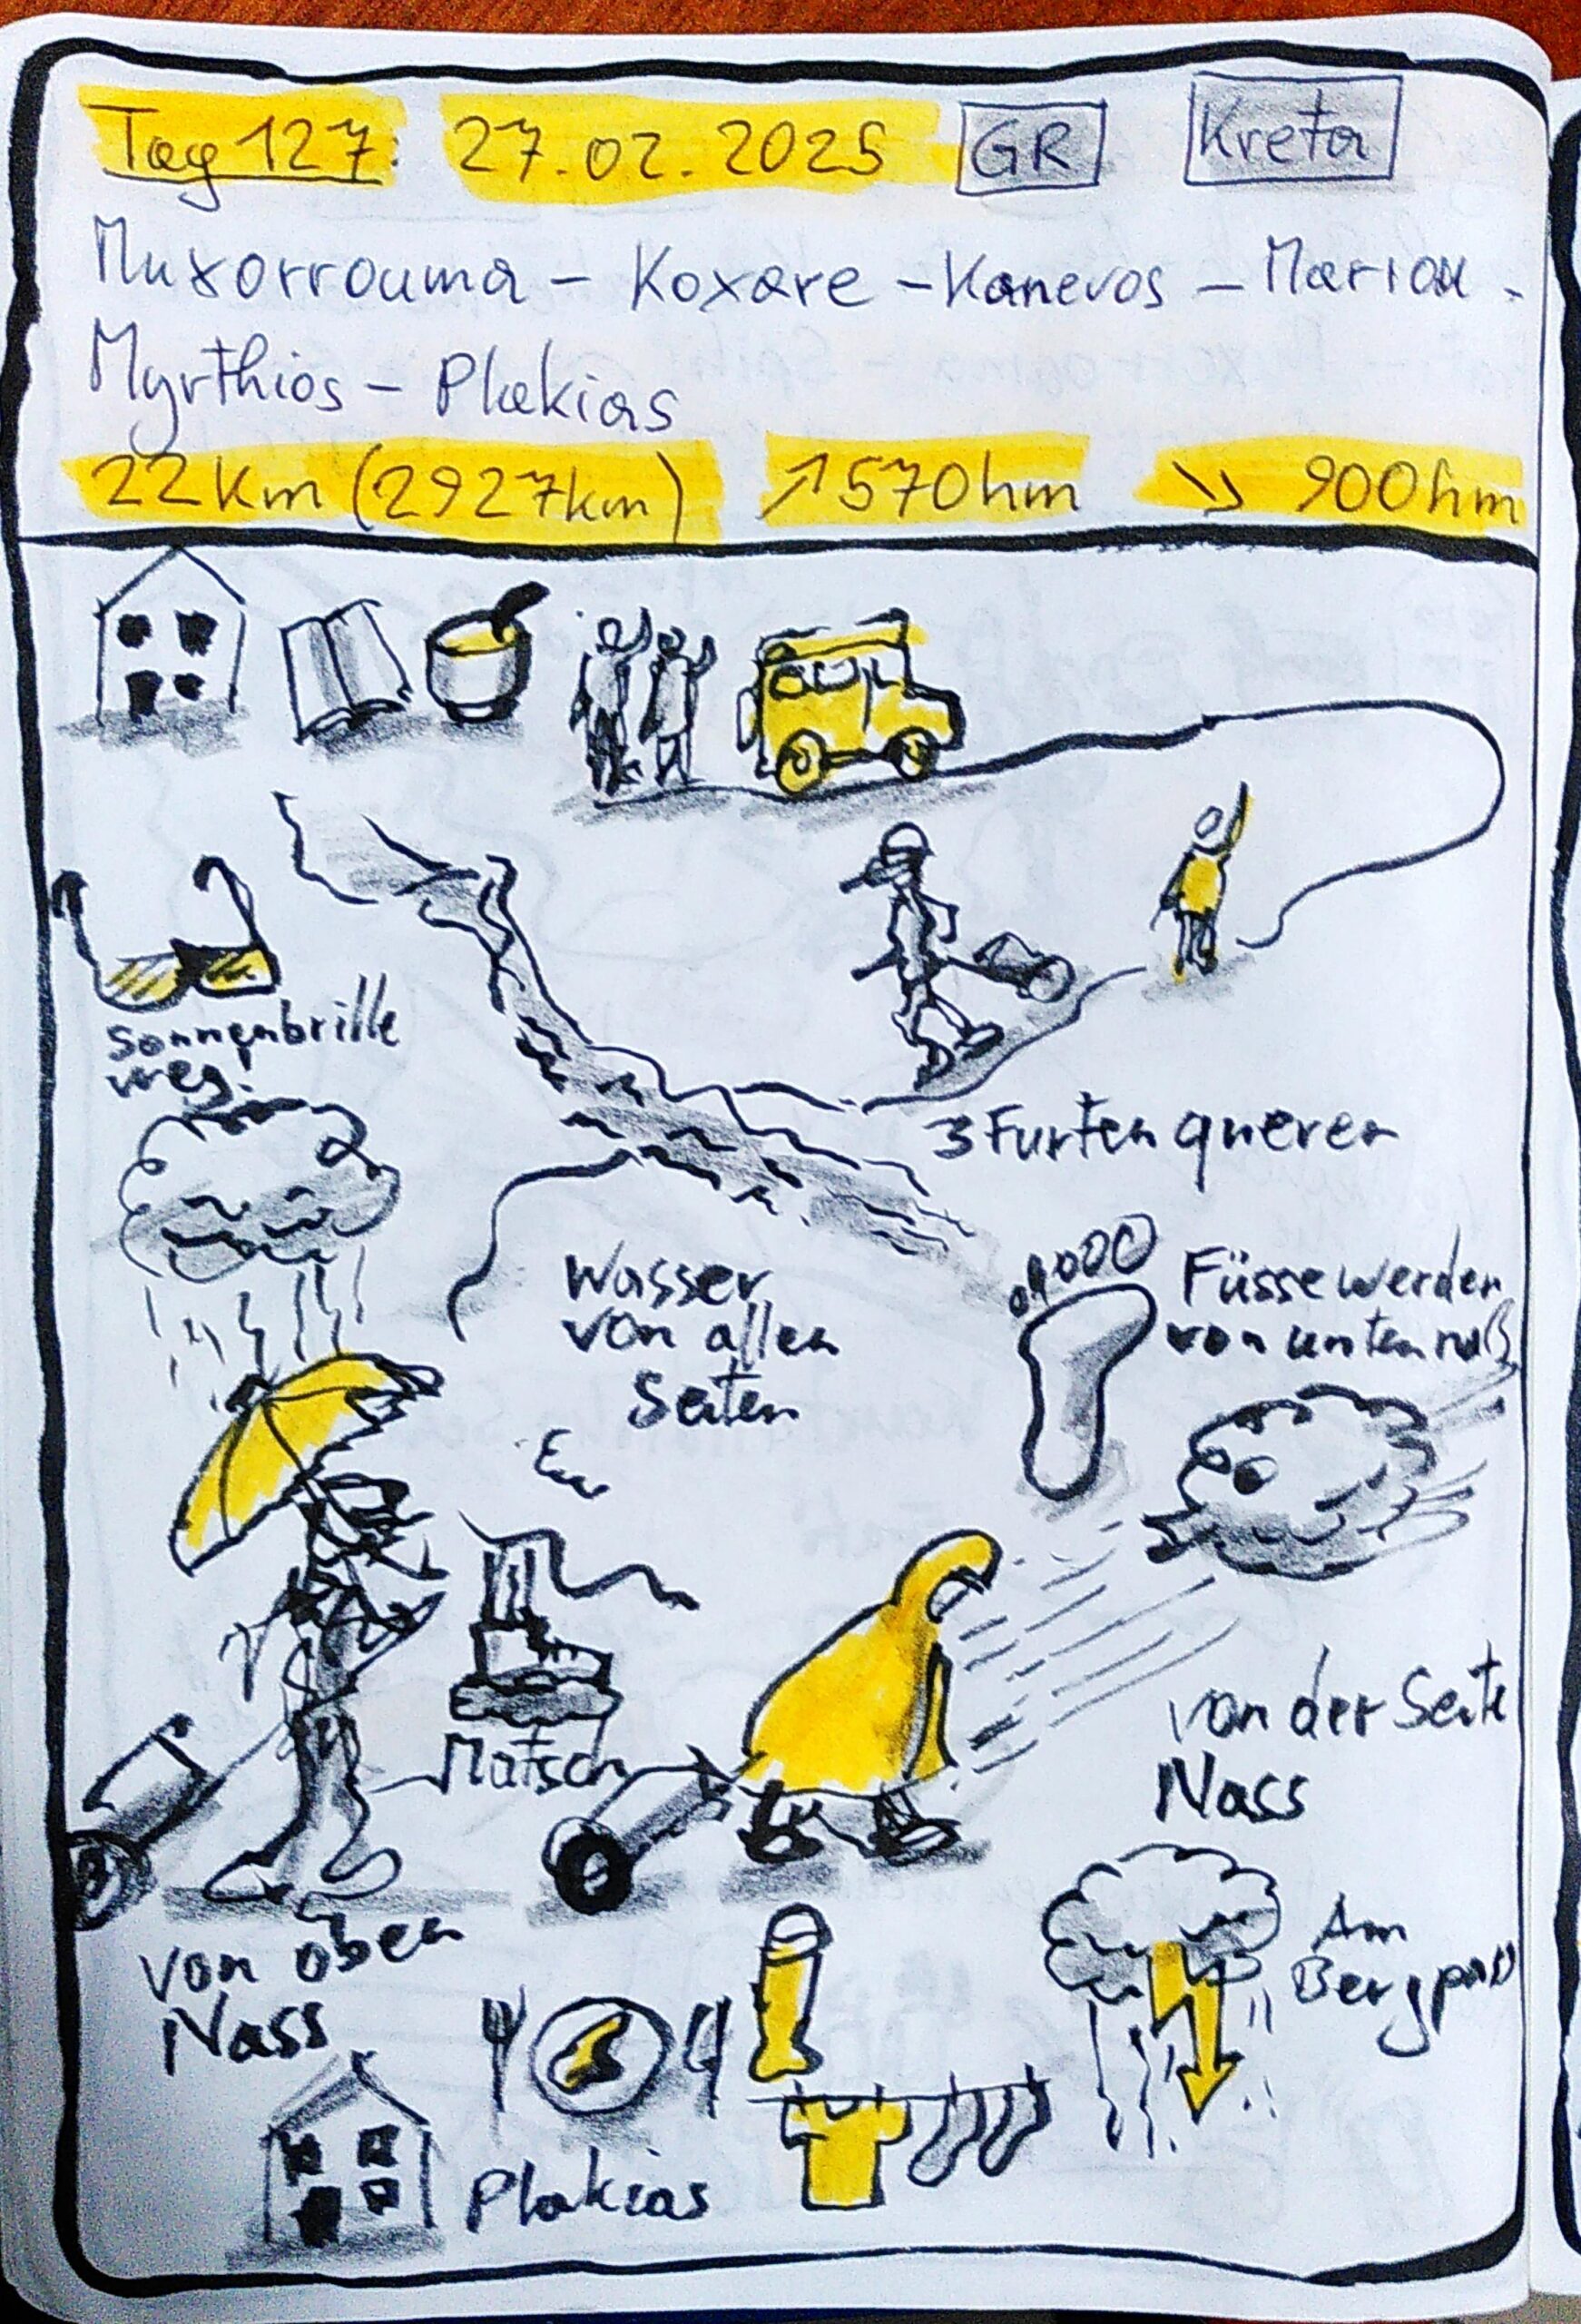 Tag 127: 27.02.2025 GR Kreta
Muxorrouma - Koxare - Kanevos - Mariou -
Myrthios - Plakias
22km (2927km) ↗ 570hm ↘ 900hm
Sonnenbrille
weg!
3 Furten queren
Wasser
von allen
Seiten
Füsse werden
von unten naß
Matsch
von der Seite
Nass
von oben
Nass
Am
Bergpass
Plakias